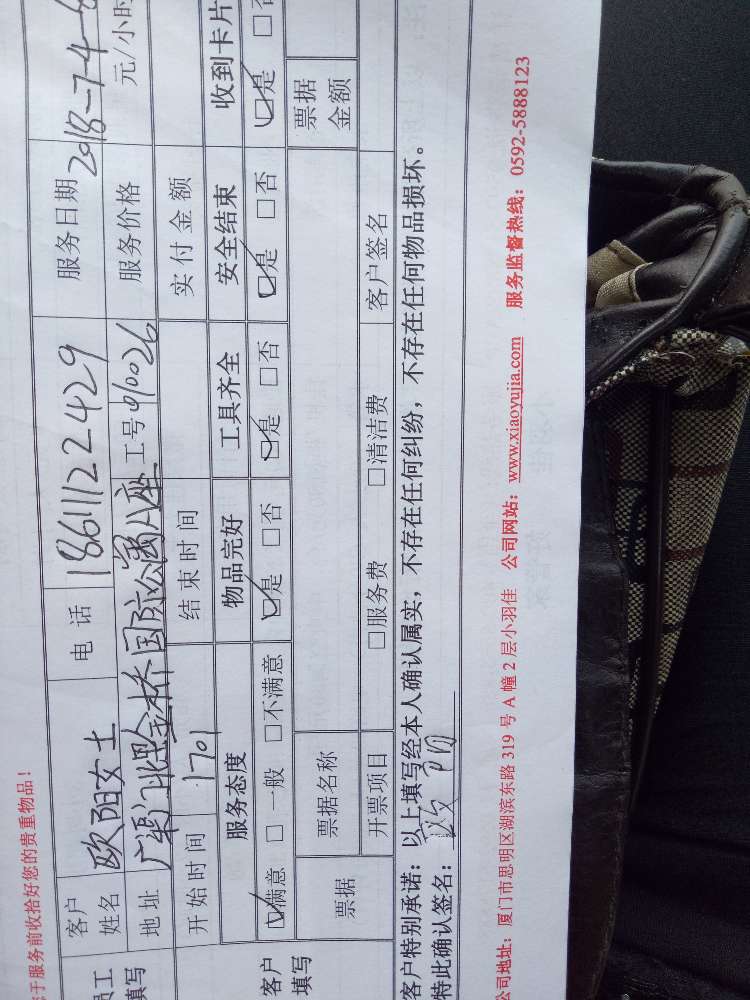 于服务前收拾好您的贵重物品！
员工填写 客户姓名 欧阳女士 电话 18611122429 服务日期 2018-7-4
地址 广渠门北里金桥国际公寓A座 工号 010026 服务价格 元/小时
1701
开始时间 结束时间 实付金额
客户填写 服务态度 物品完好 工具齐全 安全结束 收到卡片
☑满意 □一般 □不满意 ☑是 □否 ☑是 □否 ☑是 □否 ☑是 □否
票据 票据名称 票据金额
开票项目 □服务费 □清洁费 客户签名
客户特别承诺：以上填写经本人确认属实，不存在任何纠纷，不存在任何物品损坏。
特此确认签名： 欧阳
公司地址：厦门市思明区湖滨东路 319 号 A 幢 2 层小羽佳 公司网站：www.xiaoyujia.com 服务监督热线：0592-5888123